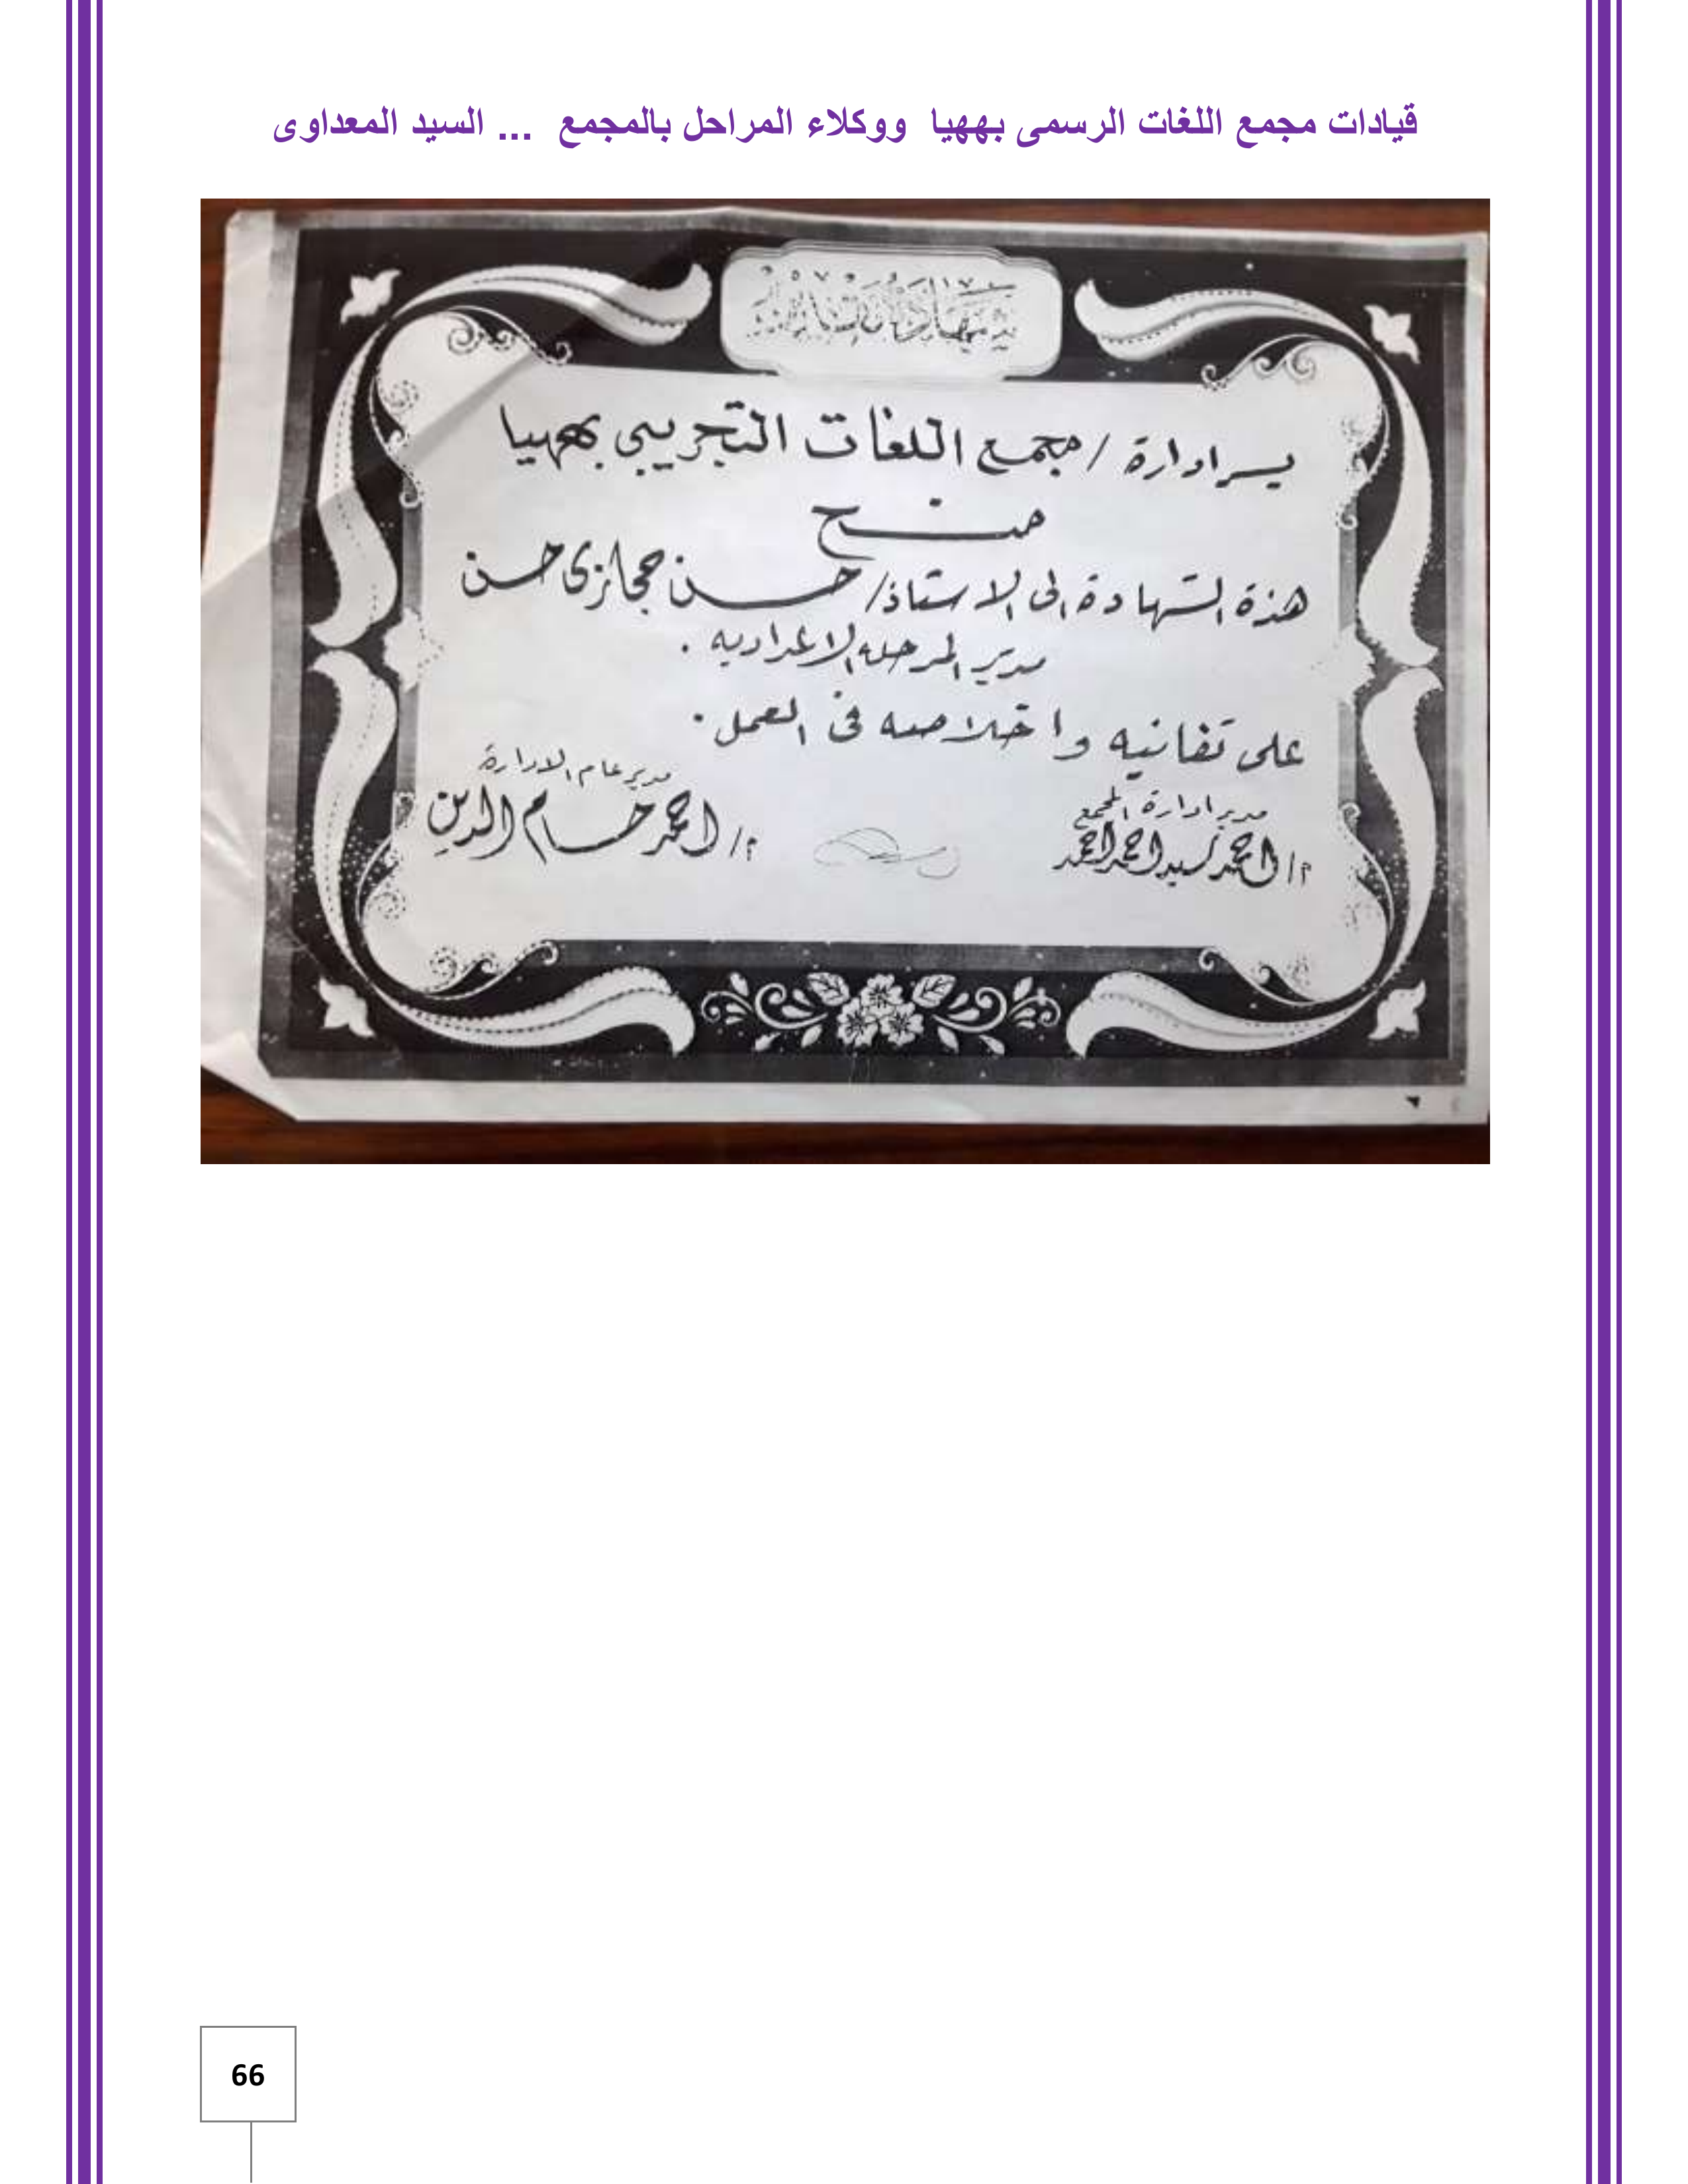 قيادات مجمع اللغات الرسمى بههيا ووكلاء المراحل بالمجمع ... السيد المعداوى
يسر ادارة / مجمع اللغات التجريبى بههيا
منح
هذة الشهادة الى الاستاذ / حسن حجازى حسن
مدير المرحله الاعداديه .
على تفانيه واخلاصه فى العمل .
مدير ادارة المجمع
أ/ احمد سيد احمد احمد
مدير عام الادارة
أ/ احمد حسام الدين
66